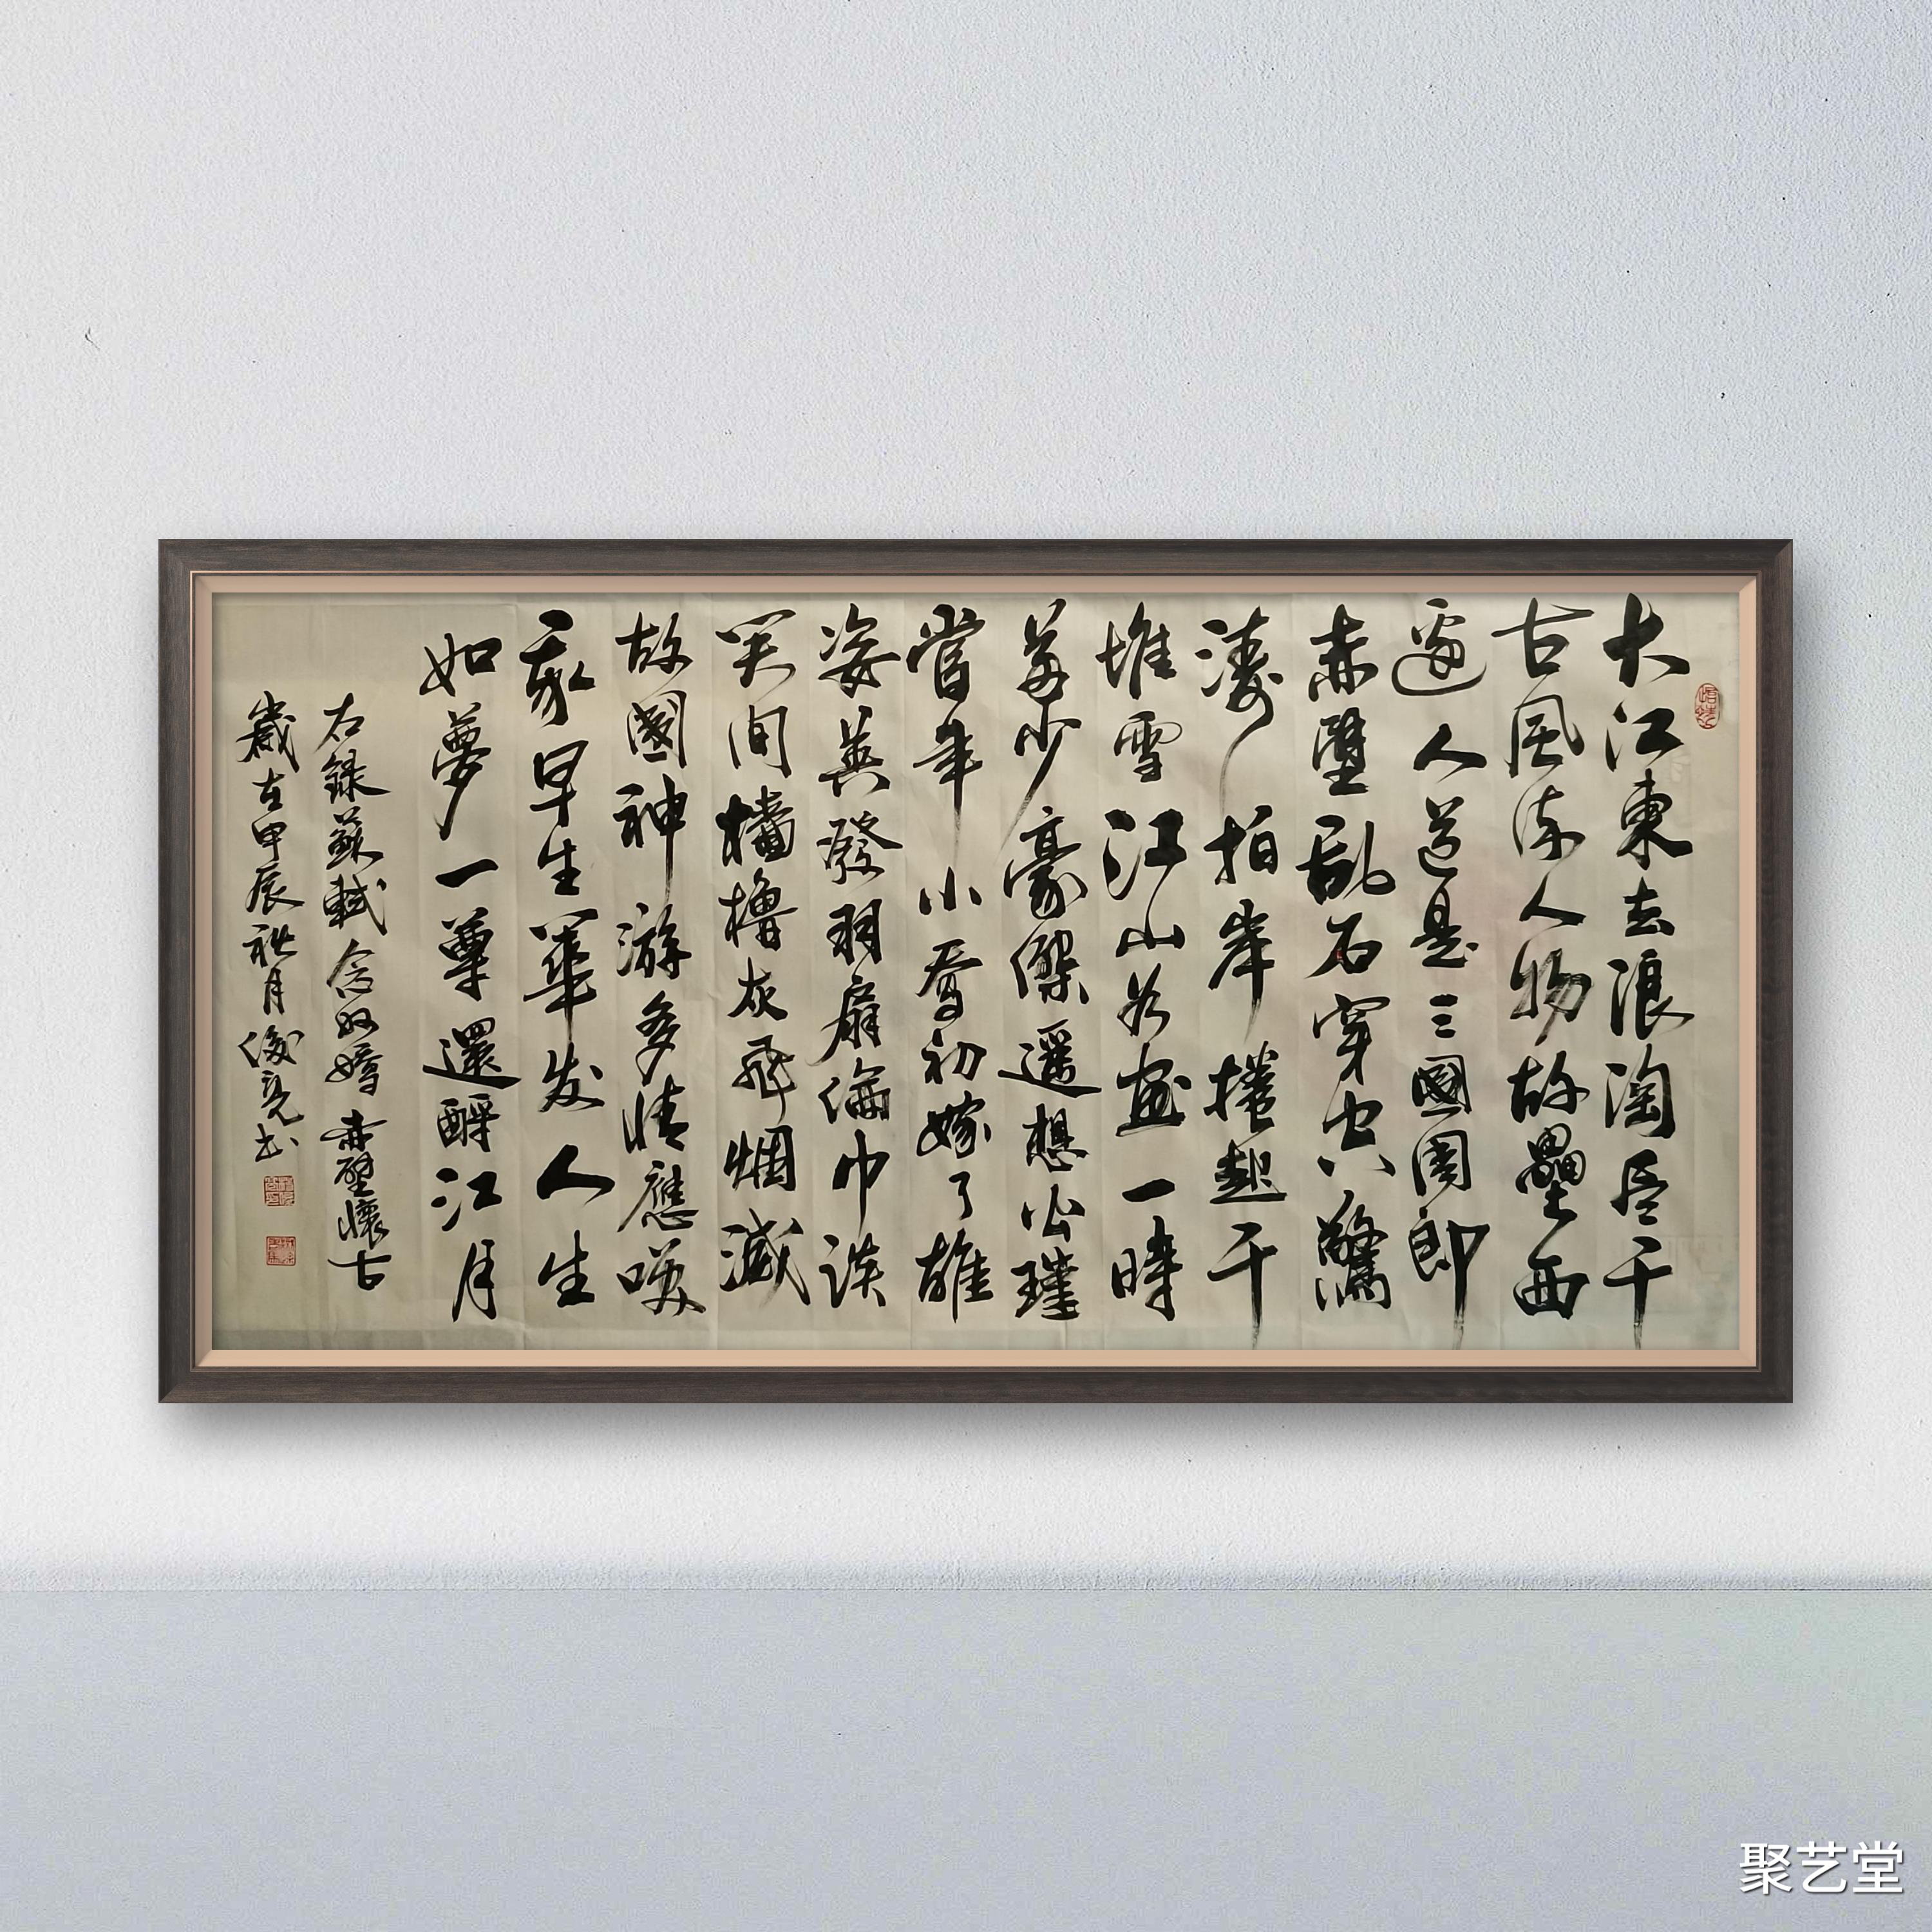 大江東去浪淘尽千
古風流人物故壘西
邊人道是三國周郎
赤壁乱石穿空驚
濤拍岸捲起千
堆雪江山如畫一時
多少豪傑遥想公瑾
當年小喬初嫁了雄
姿英發羽扇綸巾談
笑间檣櫓灰飛烟滅
故國神游多情應咲
我早生華发人生
如夢一尊還酹江月
右録蘇軾念奴嬌赤壁懷古
歲在甲辰秋月俊亮书
聚艺堂